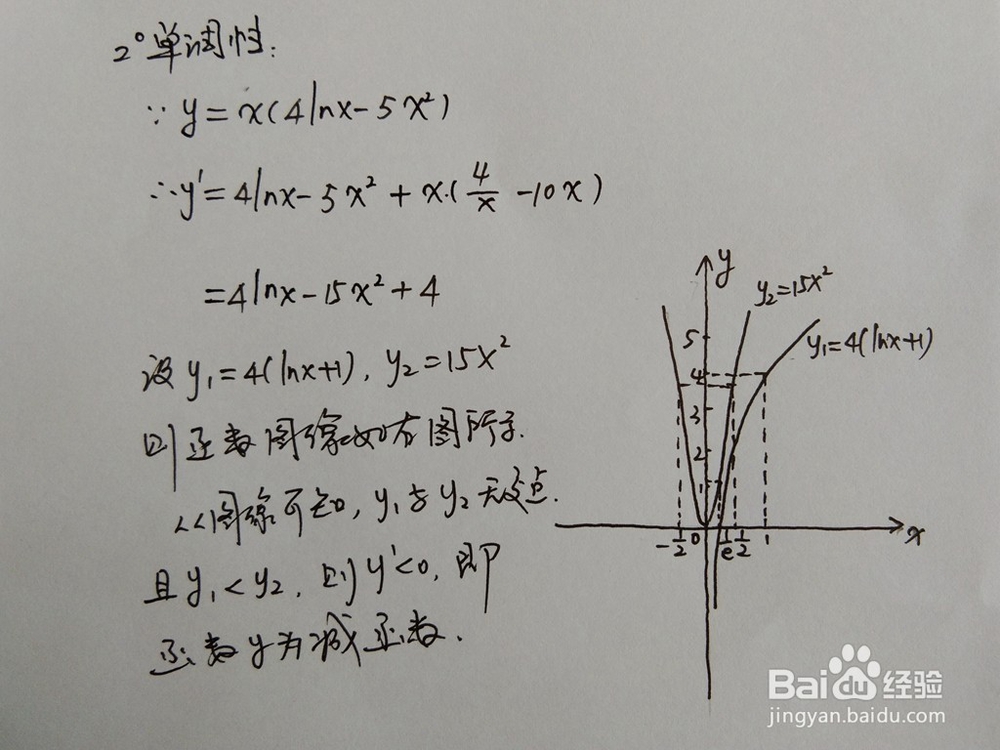 2° 单调性:
∵ y = x(4lnx - 5x²)
∴ y' = 4lnx - 5x² + x·(4/x - 10x)
= 4lnx - 15x² + 4
设 y₁ = 4(lnx+1), y₂ = 15x²
则函数图像如右图所示.
从图像可知, y₁与y₂无交点.
且 y₁ < y₂, 则 y' < 0, 即
函数y为减函数.
y
y₂=15x²
5
y₁=4(lnx+1)
4
3
2
1
-1/2 0 1/e 1/2 1 x
Baidu经验
jingyan.baidu.com